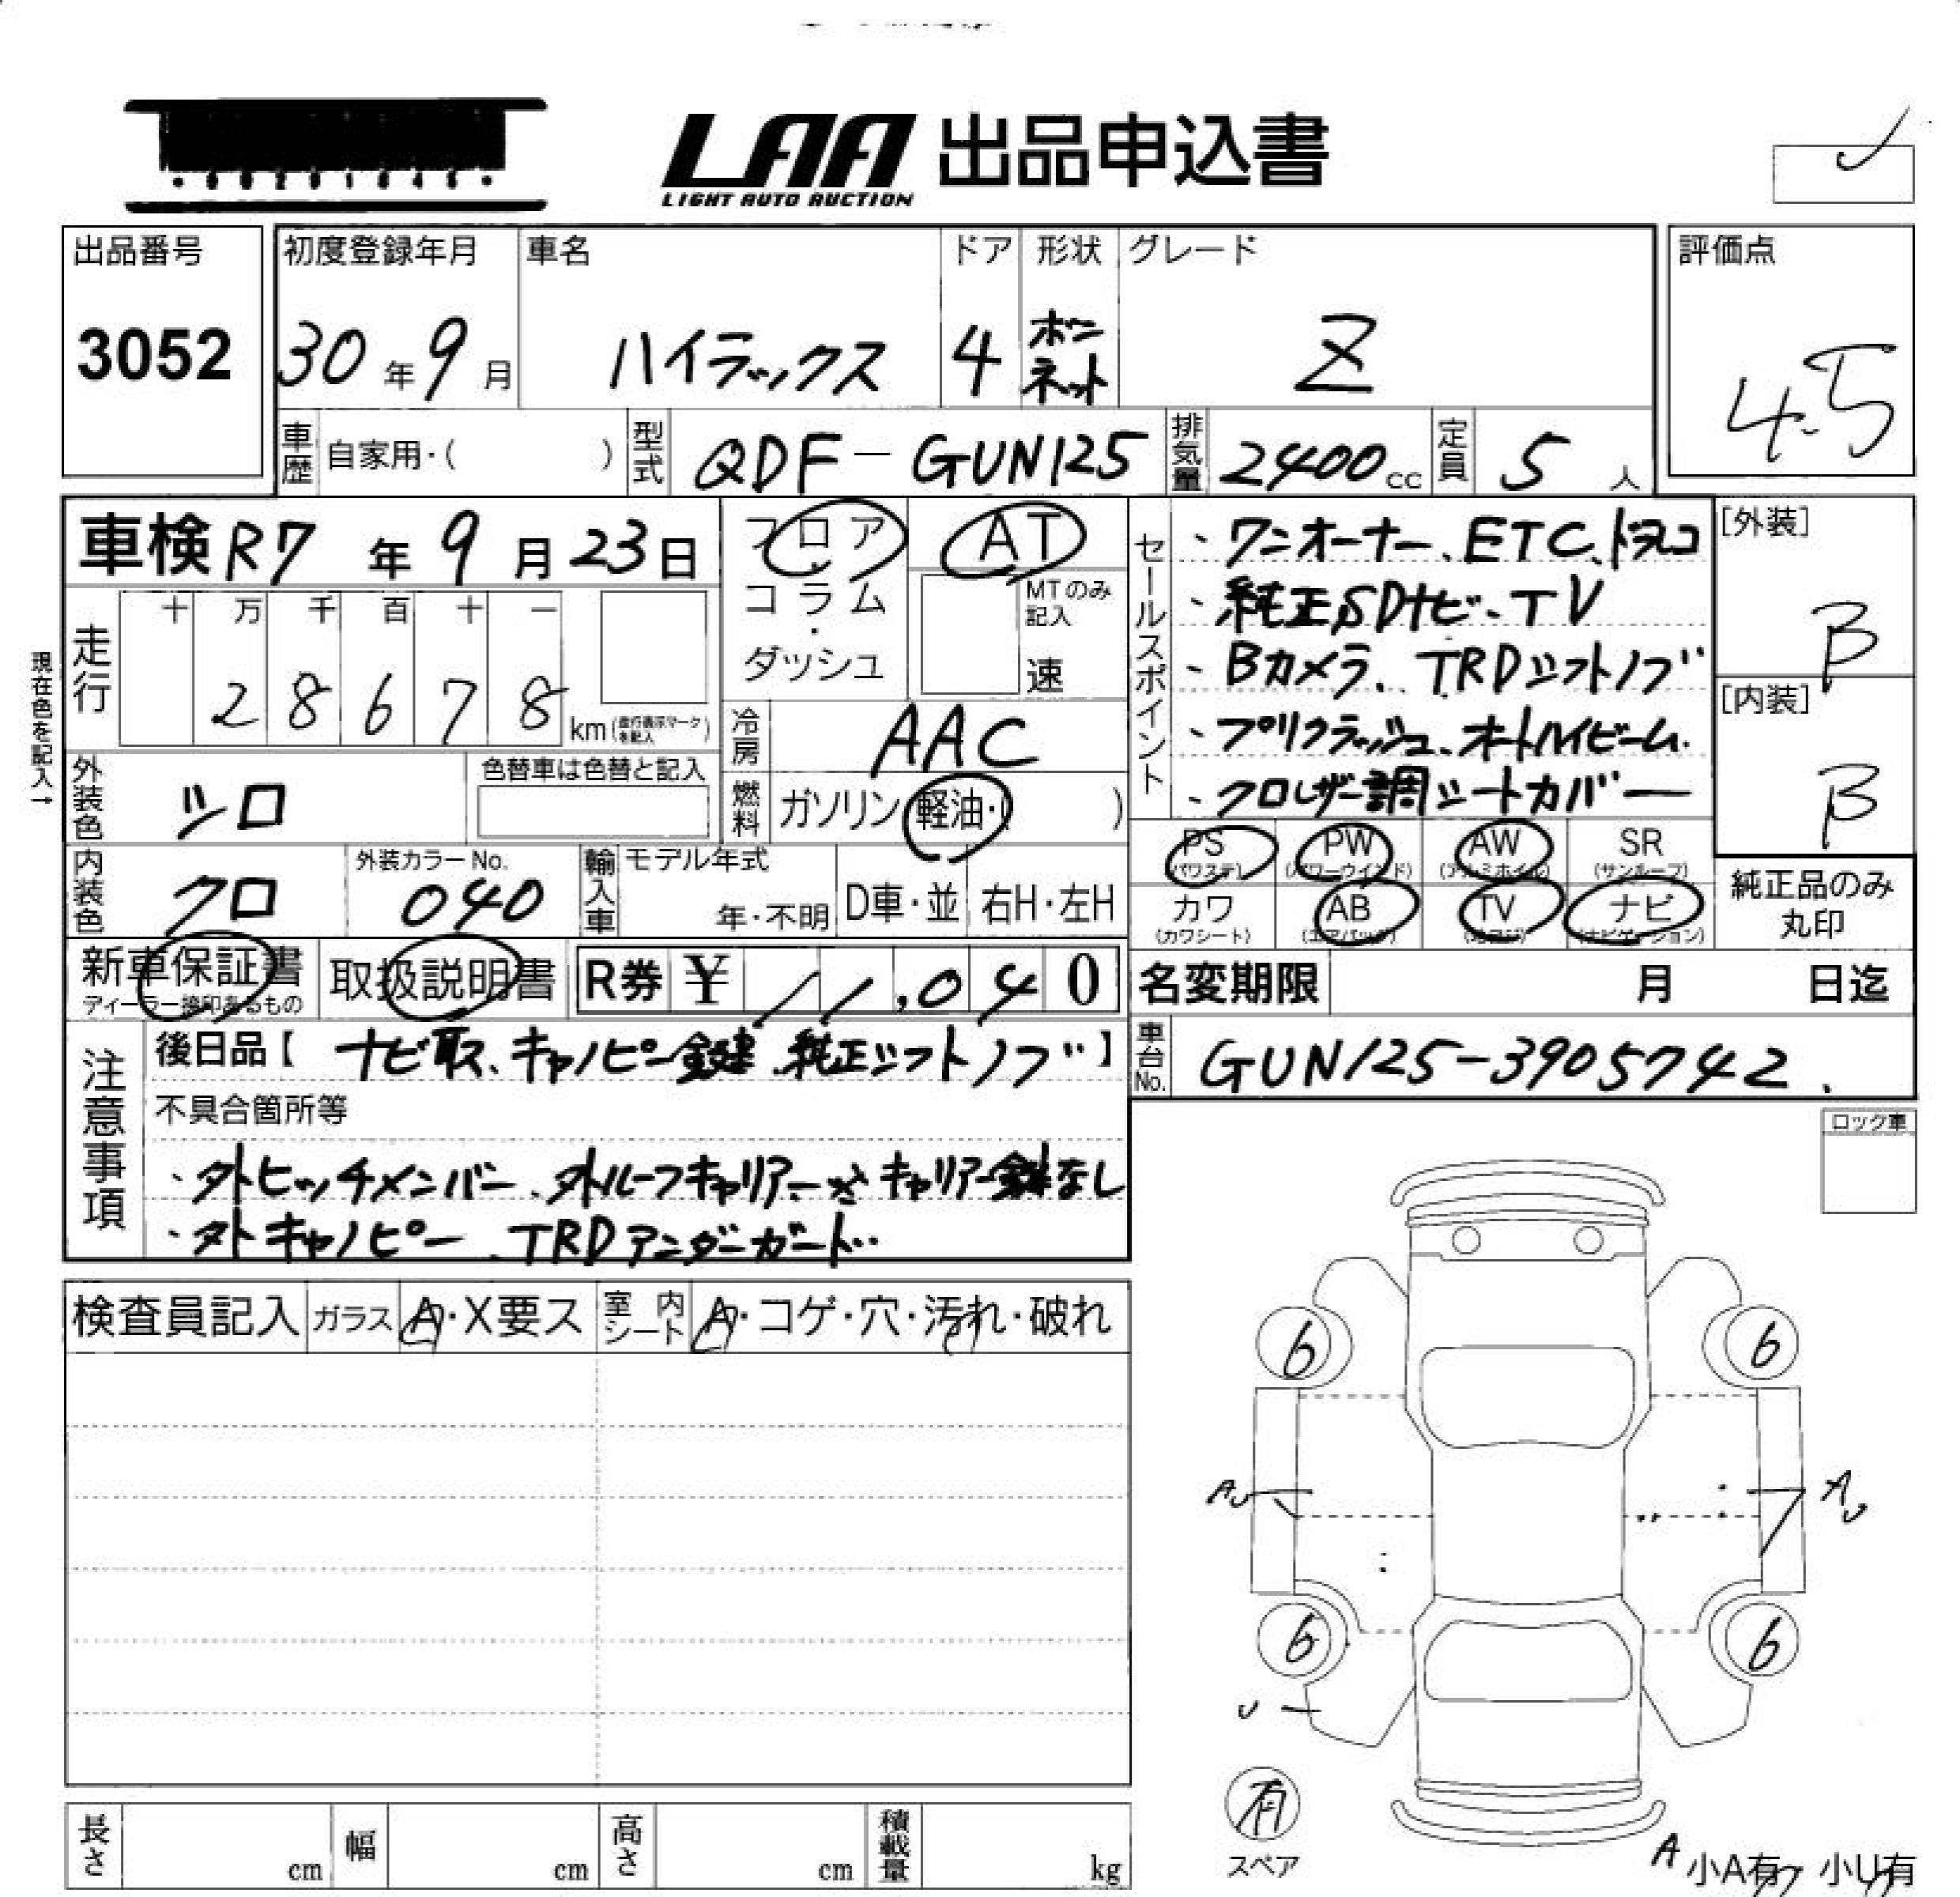 LAA 出品申込書
LIGHT AUTO AUCTION
出品番号
3052
初度登録年月
30年9月
車名
ハイラックス
ドア
4
形状
ボンネット
グレード
Z
評価点
4.5
車歴 自家用・( )
型式 QDF-GUN125
排気量 2400cc
定員 5人
車検 R7年9月23日
フロア
コラム・
ダッシュ
AT
MTのみ記入
速
現在色を記入→
走行
十 万 千 百 十 一
2 8 6 7 8 km(走行表示マークを記入)
冷房 AAC
燃料 ガソリン・軽油・( )
外装色 シロ
色替車は色替と記入
内装色 クロ
外装カラーNo.
040
輸入車
モデル年式
年・不明
D車・並
右H・左H
セールスポイント
・ワンオーナー、ETC、ドラレコ
・純正SDナビ、TV
・Bカメラ、TRDシフトノブ
・プリクラッシュ、オートハイビーム
・クロレザー調シートカバー
[外装]
B
[内装]
B
PS (パワステ)
PW (パワーウインド)
AW (アルミホイル)
SR (サンルーフ)
カワ (カワシート)
AB (エアバッグ)
TV (地デジ)
ナビ (ナビゲーション)
純正品のみ丸印
新車保証書
ディーラー捺印あるもの
取扱説明書
R券 ¥ 11,040
名変期限 月 日迄
車台No. GUN125-3905742
注意事項
後日品【ナビ取、キャノピー鍵、純正シフトノブ】
不具合箇所等
・外ヒッチメンバー、外ルーフキャリアー キャリアー鍵なし
・外キャノピー、TRDアンダーガード
ロック車
検査員記入
ガラス A・X要ス
室内シート A・コゲ・穴・汚れ・破れ
6
6
AU
AU
6
6
U
有
スペア
A
小A有・小U有
長さ cm
幅 cm
高さ cm
積載量 kg